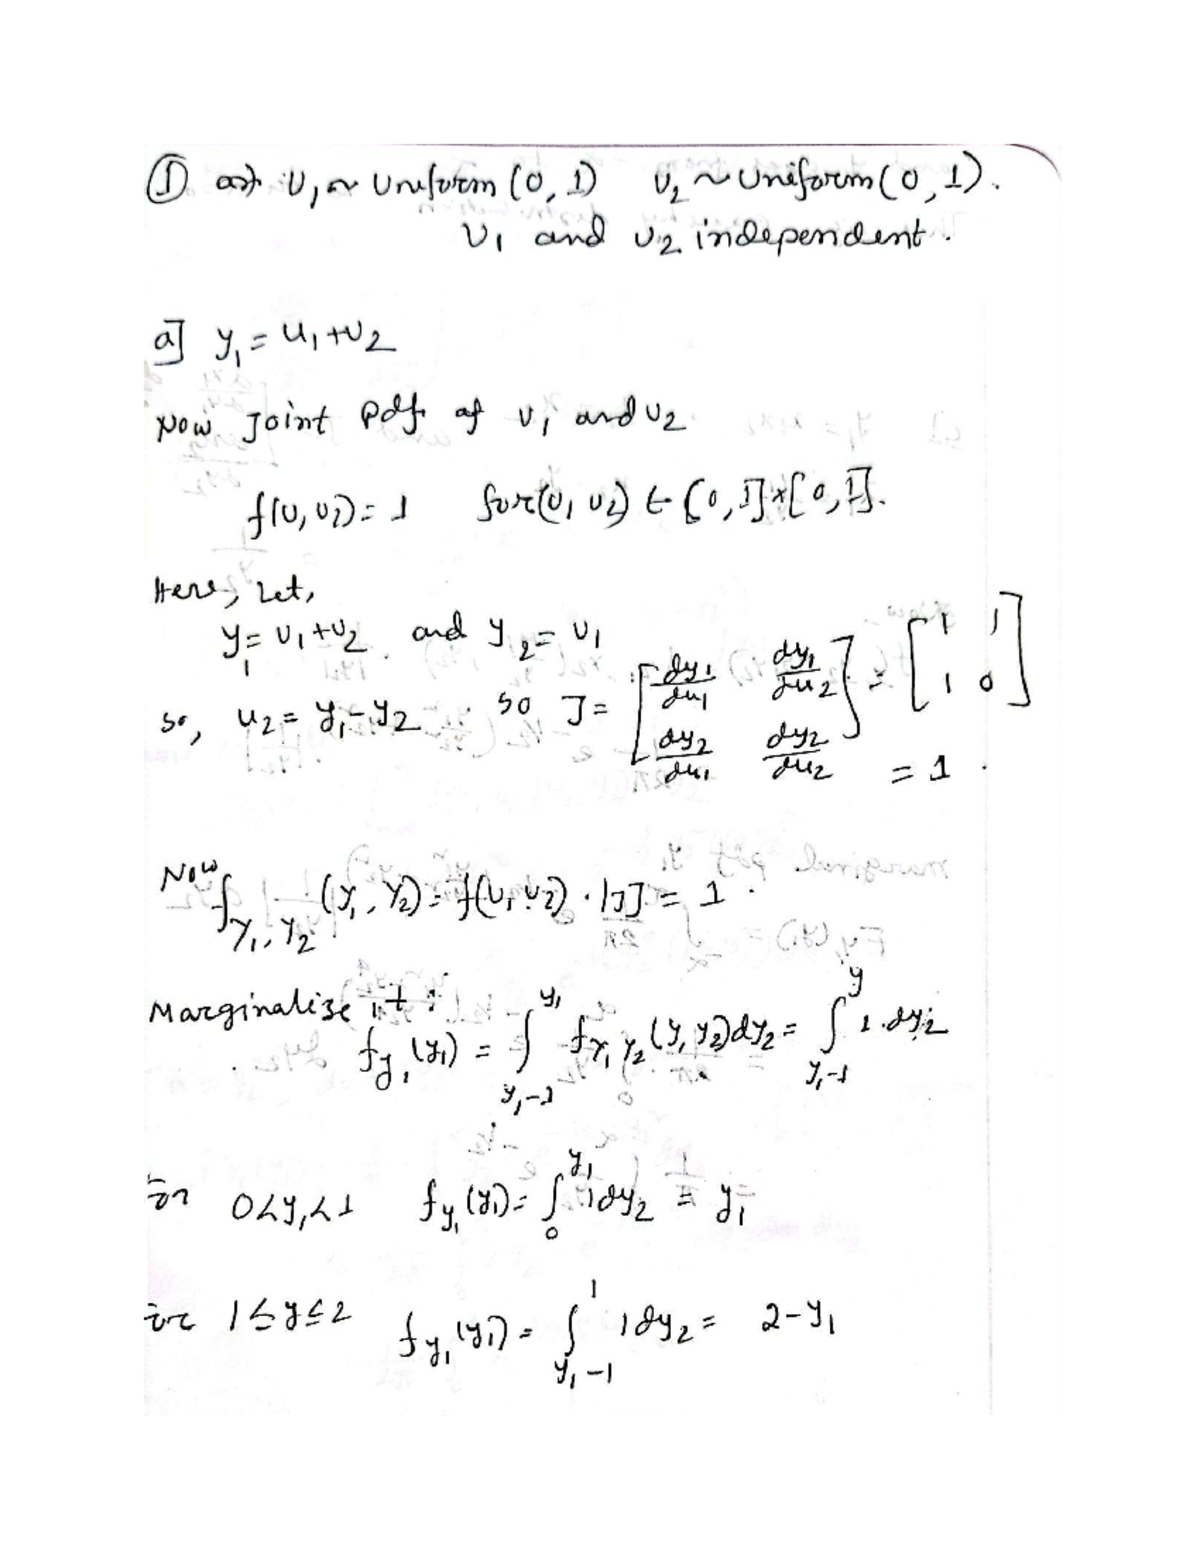 ① U₁ ~ Uniform (0, 1) U₂ ~ Uniform (0, 1).
U₁ and U₂ independent.
a] y₁ = u₁ + U₂
Now Joint Pdf of U₁ and U₂
f(U₁ U₂) = 1 for (U₁ U₂) ∈ [0, 1] × [0, 1].
Here, Let,
y₁ = U₁ + U₂ and y₂ = U₁
so, u₂ = y₁ - y₂ so J = [dy₁/du₁ dy₁/du₂ ; dy₂/du₁ dy₂/du₂] = [1 1 ; 1 0]
= 1.
Now f_{Y₁, Y₂} (Y₁, Y₂) = f(U₁, U₂) · |J| = 1.
Marginalize it :
f_{y₁} (y₁) = ∫_{y₁-1}^{y₁} f_{Y₁ Y₂} (y₁ y₂) dy₂ = ∫_{y₁-1}^{y} 1 · dy₂
For 0 < y₁ < 1 f_{y₁} (y₁) = ∫_0^{y₁} 1 dy₂ = y₁
For 1 ≤ y ≤ 2 f_{y₁} (y₁) = ∫_{y₁-1}^{1} 1 dy₂ = 2 - y₁